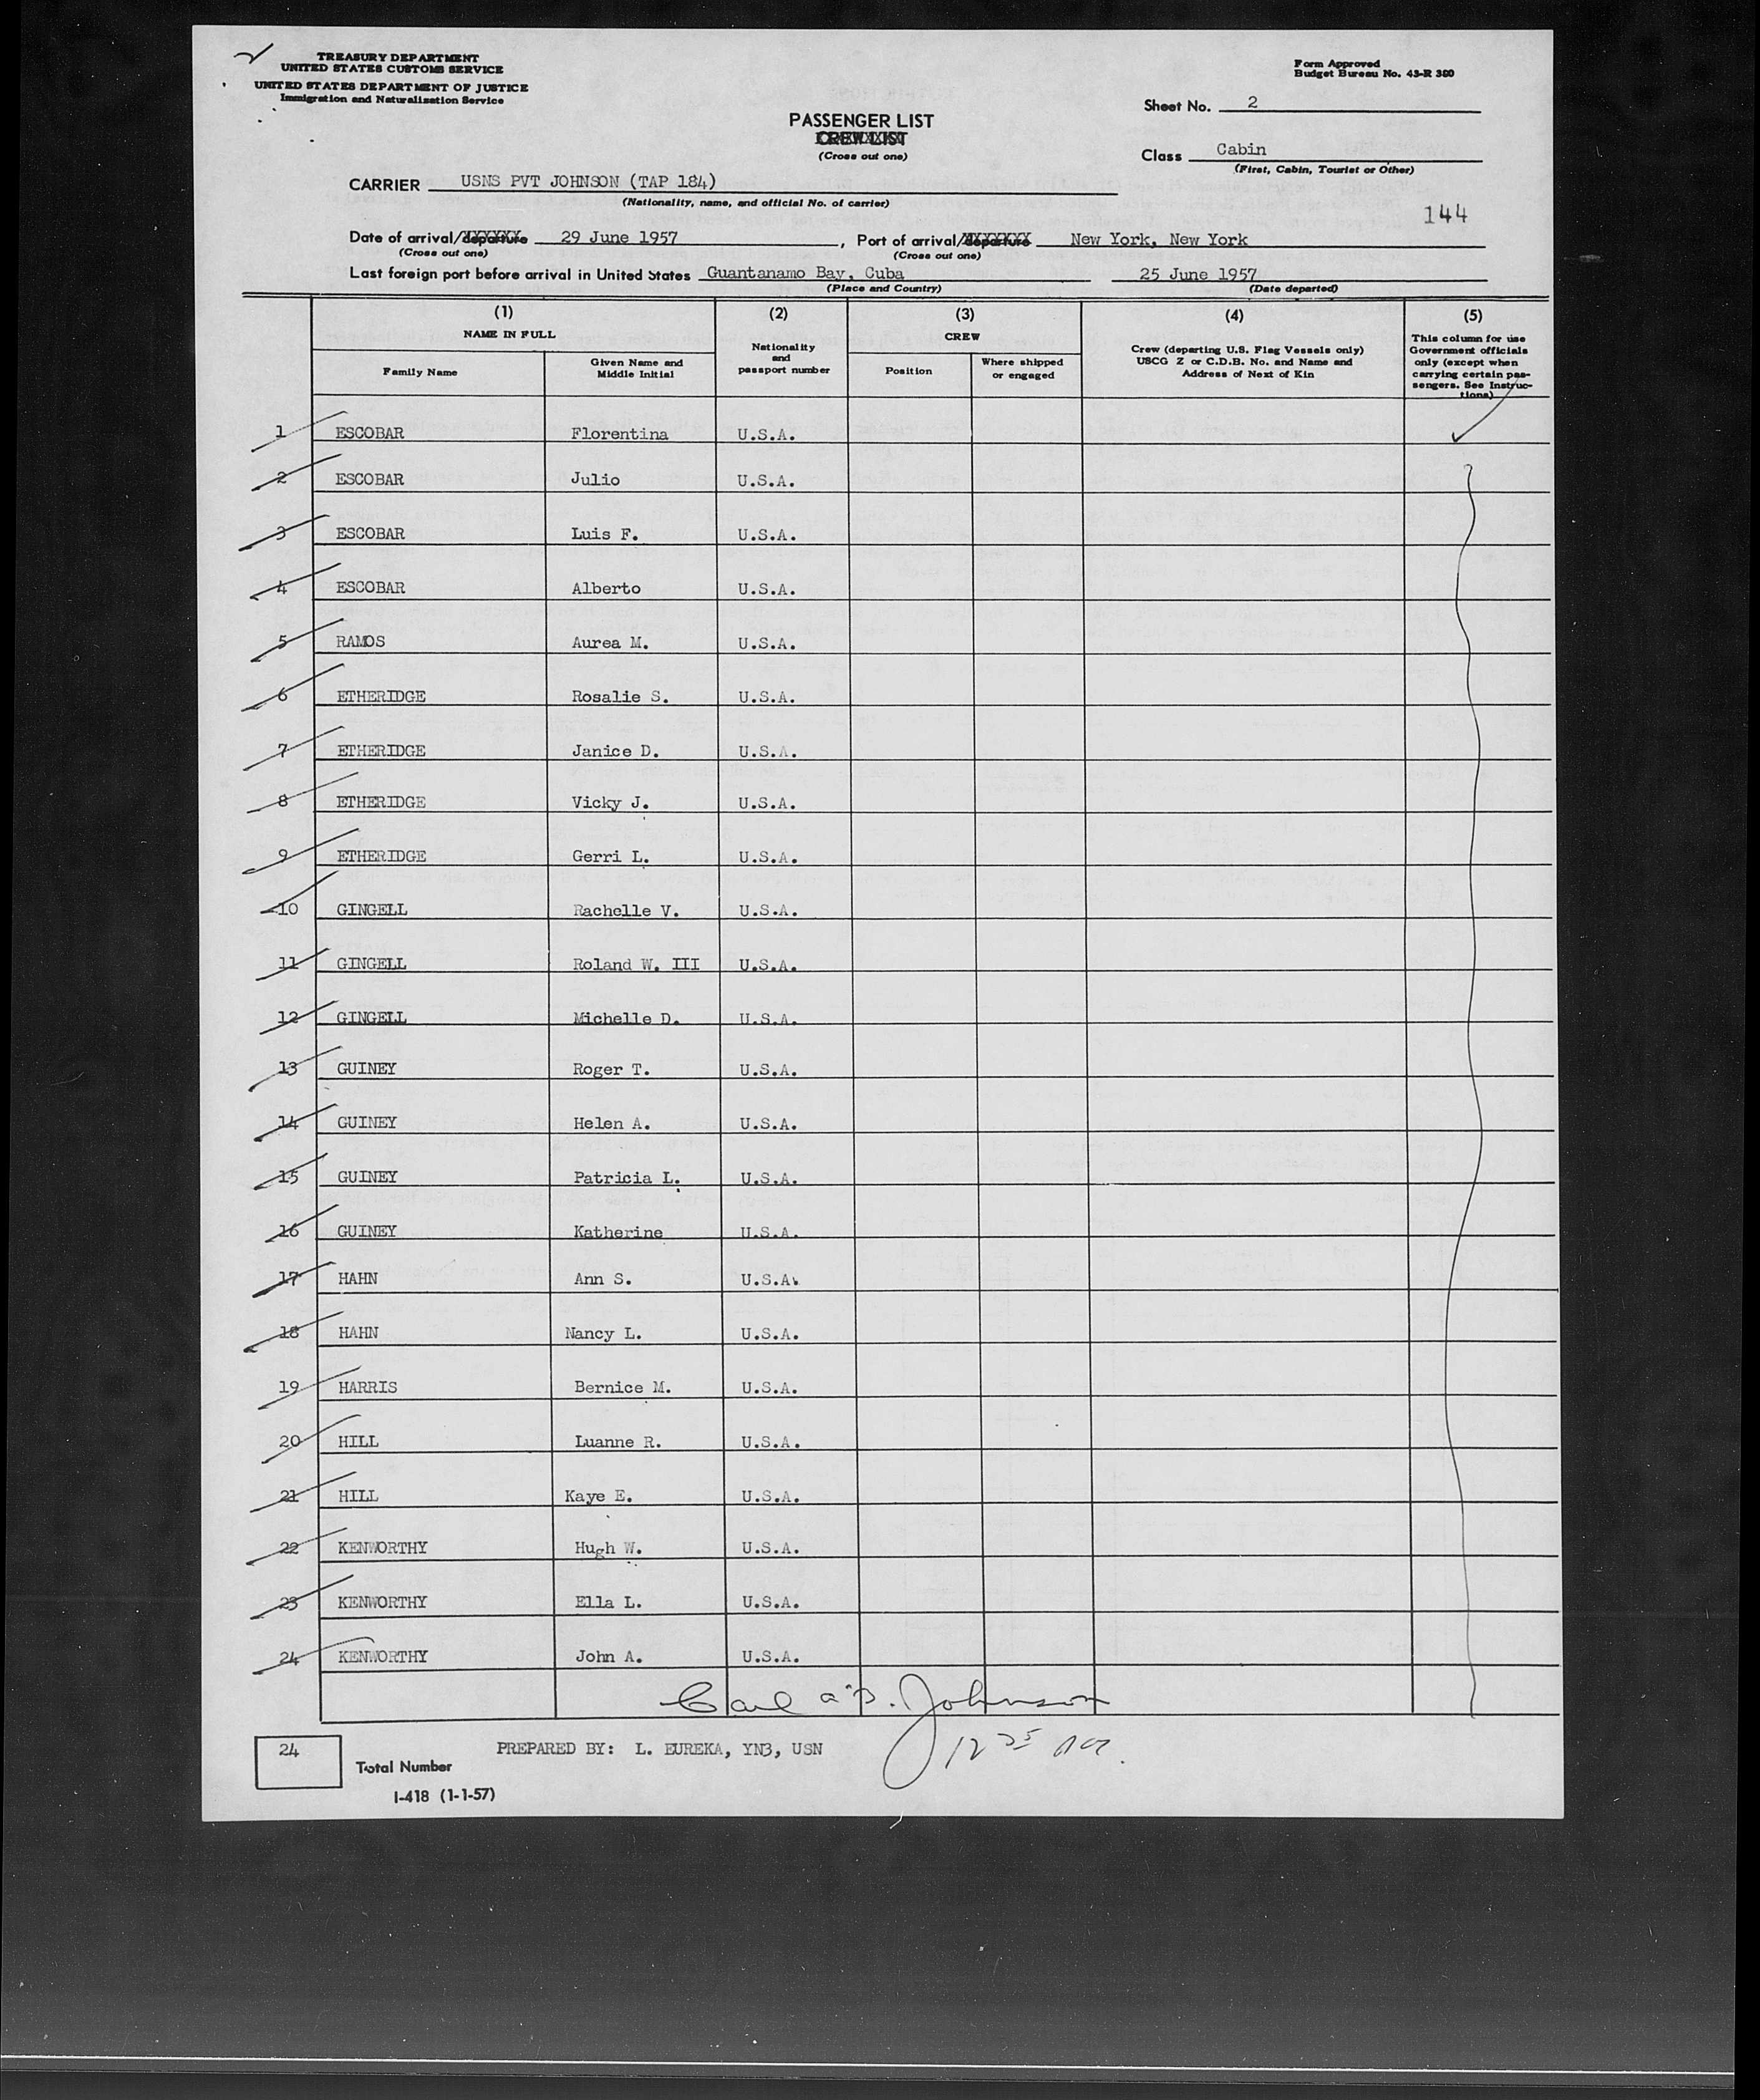 TREASURY DEPARTMENT
UNITED STATES CUSTOMS SERVICE
UNITED STATES DEPARTMENT OF JUSTICE
Immigration and Naturalization Service
Form Approved
Budget Bureau No. 43-R 380
Sheet No. 2
PASSENGER LIST
CREW LIST
(Cross out one)
Class Cabin
(First, Cabin, Tourist or Other)
CARRIER USNS PVT JOHNSON (TAP 184)
(Nationality, name, and official No. of carrier)
144
Date of arrival/departure 29 June 1957, Port of arrival/departure New York, New York
(Cross out one) (Cross out one)
Last foreign port before arrival in United States Guantanamo Bay, Cuba 25 June 1957
(Place and Country) (Date departed)
(1) (2) (3) (4) (5)
NAME IN FULL
Family Name
Given Name and Middle Initial
Nationality and passport number
CREW
Position
Where shipped or engaged
Crew (departing U.S. Flag Vessels only)
USCG Z or C.D.B. No. and Name and
Address of Next of Kin
This column for use
Government officials
only (except when
carrying certain pas-
sengers. See Instruc-
tions)
1 ESCOBAR Florentina U.S.A.
2 ESCOBAR Julio U.S.A.
3 ESCOBAR Luis F. U.S.A.
4 ESCOBAR Alberto U.S.A.
5 RAMOS Aurea M. U.S.A.
6 ETHERIDGE Rosalie S. U.S.A.
7 ETHERIDGE Janice D. U.S.A.
8 ETHERIDGE Vicky J. U.S.A.
9 ETHERIDGE Gerri L. U.S.A.
10 GINGELL Rachelle V. U.S.A.
11 GINGELL Roland W. III U.S.A.
12 GINGELL Michelle D. U.S.A.
13 GUINEY Roger T. U.S.A.
14 GUINEY Helen A. U.S.A.
15 GUINEY Patricia L. U.S.A.
16 GUINEY Katherine U.S.A.
17 HAHN Ann S. U.S.A.
18 HAHN Nancy L. U.S.A.
19 HARRIS Bernice M. U.S.A.
20 HILL Luanne R. U.S.A.
21 HILL Kaye E. U.S.A.
22 KENWORTHY Hugh W. U.S.A.
23 KENWORTHY Ella L. U.S.A.
24 KENWORTHY John A. U.S.A.
Carl Johnson
24 Total Number
PREPARED BY: L. EUREKA, YN3, USN
I-418 (1-1-57)